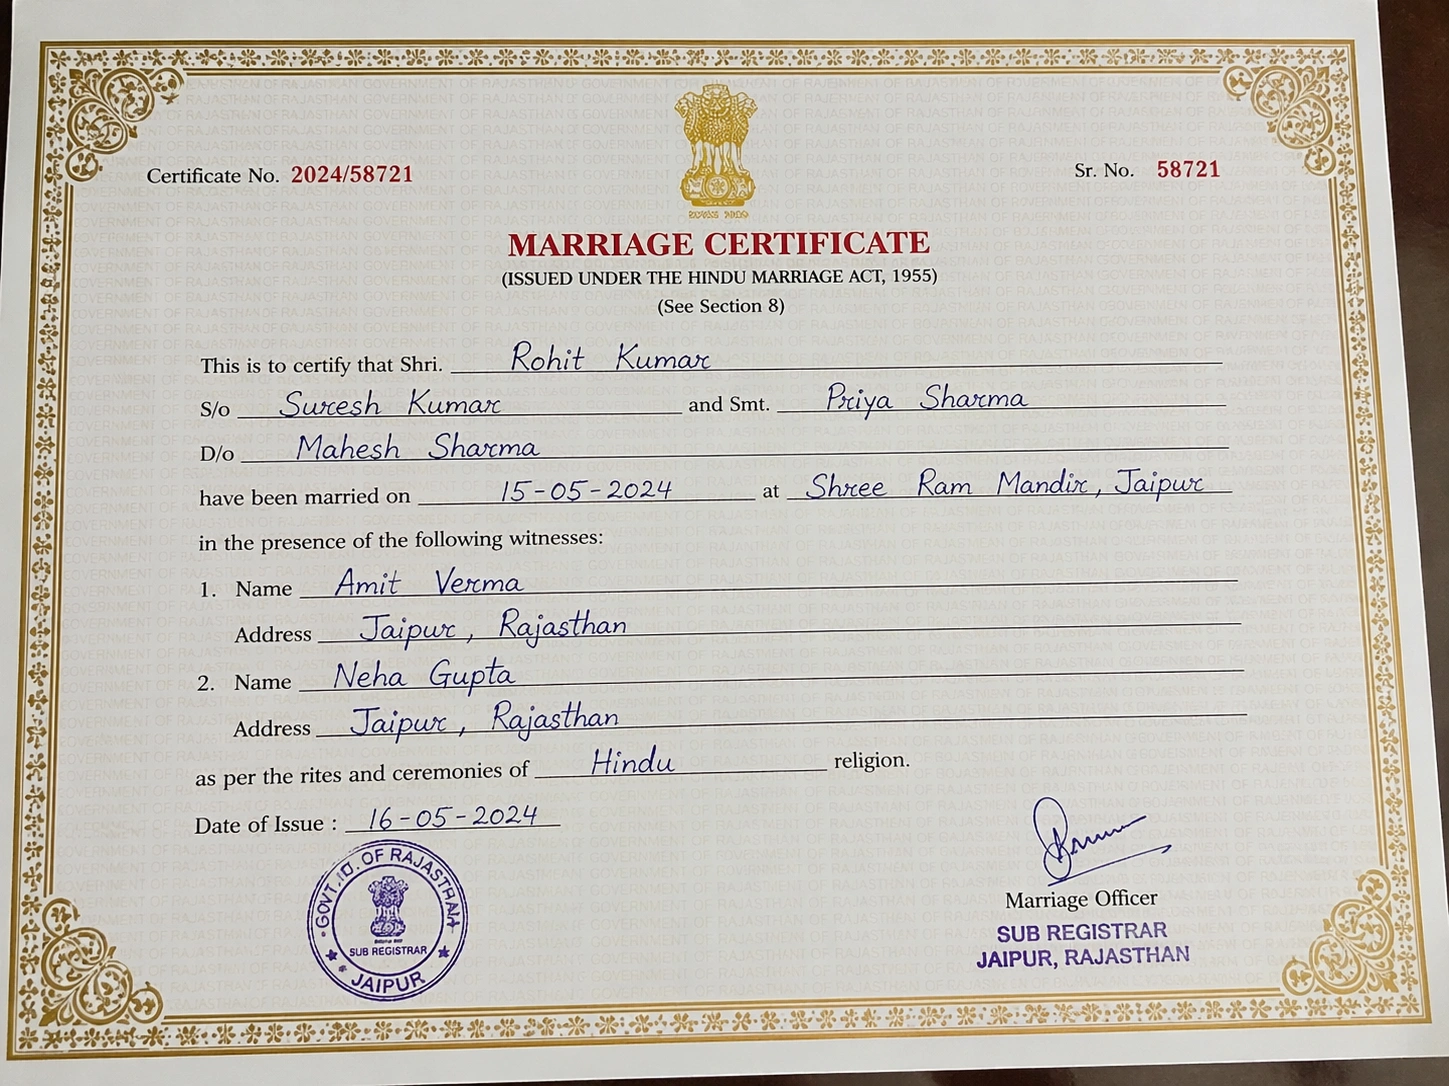 Certificate No. 2024/58721
Sr. No. 58721
MARRIAGE CERTIFICATE
(ISSUED UNDER THE HINDU MARRIAGE ACT, 1955)
(See Section 8)
This is to certify that Shri. Rohit Kumar
S/o Suresh Kumar and Smt. Priya Sharma
D/o Mahesh Sharma
have been married on 15-05-2024 at Shree Ram Mandir, Jaipur
in the presence of the following witnesses:
1. Name Amit Verma
Address Jaipur, Rajasthan
2. Name Neha Gupta
Address Jaipur, Rajasthan
as per the rites and ceremonies of Hindu religion.
Date of Issue : 16-05-2024
OF RAJASTHAN
SUB REGISTRAR
JAIPUR
Marriage Officer
SUB REGISTRAR
JAIPUR, RAJASTHAN